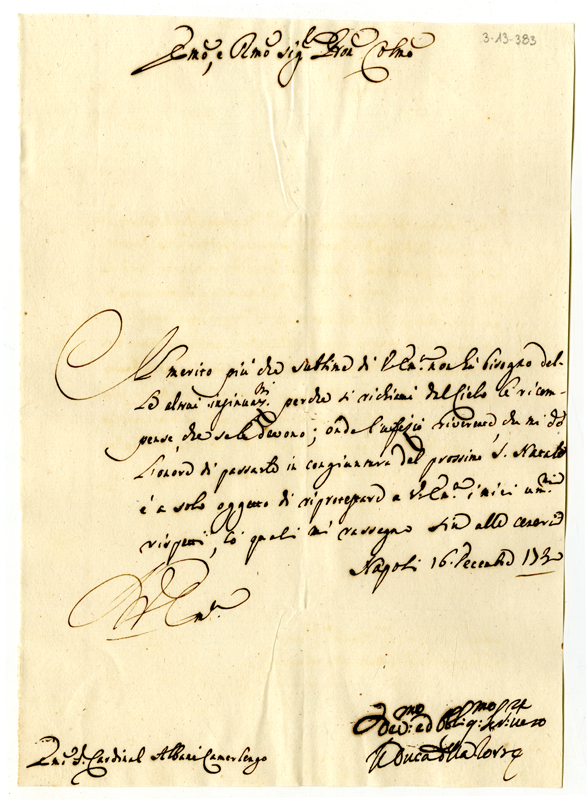 3-13-383
Emo, e Rmo Sig.r Pron Colmo
Il merito più che sublime di V. Em.a non hà bisogno del-
le altrui insinuaz.ni perche si richiami dal Cielo le ricom-
pense, che se le devono; onde l'uffizio riverente che mi dò
l'onore di passarle in congiuntura del prossimo S. Natale
è a solo oggetto di riprotestare a V. Em.a i miei um.mi
rispetti, co' quali mi rassegno sin alle ceneri
Napoli 16. Decembre
Di V. Em.a
Dev.mo ed Obblig.mo Ser. vero
Il Duca della Torre
Em.o S. Cardinal Albani Camerlengo